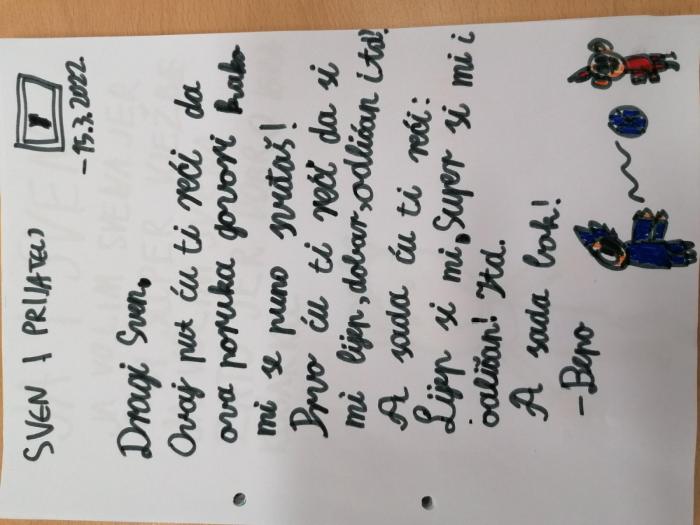 SVEN I PRIJATELJ
-15.3.2022.
Dragi Sven,
Ovaj put ću ti reći da
ova poruka govori kako
mi se puno sviđaš!
Prvo ću ti reći da si
mi lijep, dobar, odličan itd!
A sada ću ti reći:
Lijep si mi, Super si mi i
odličan! Itd.
A sada bok!
-Bepo